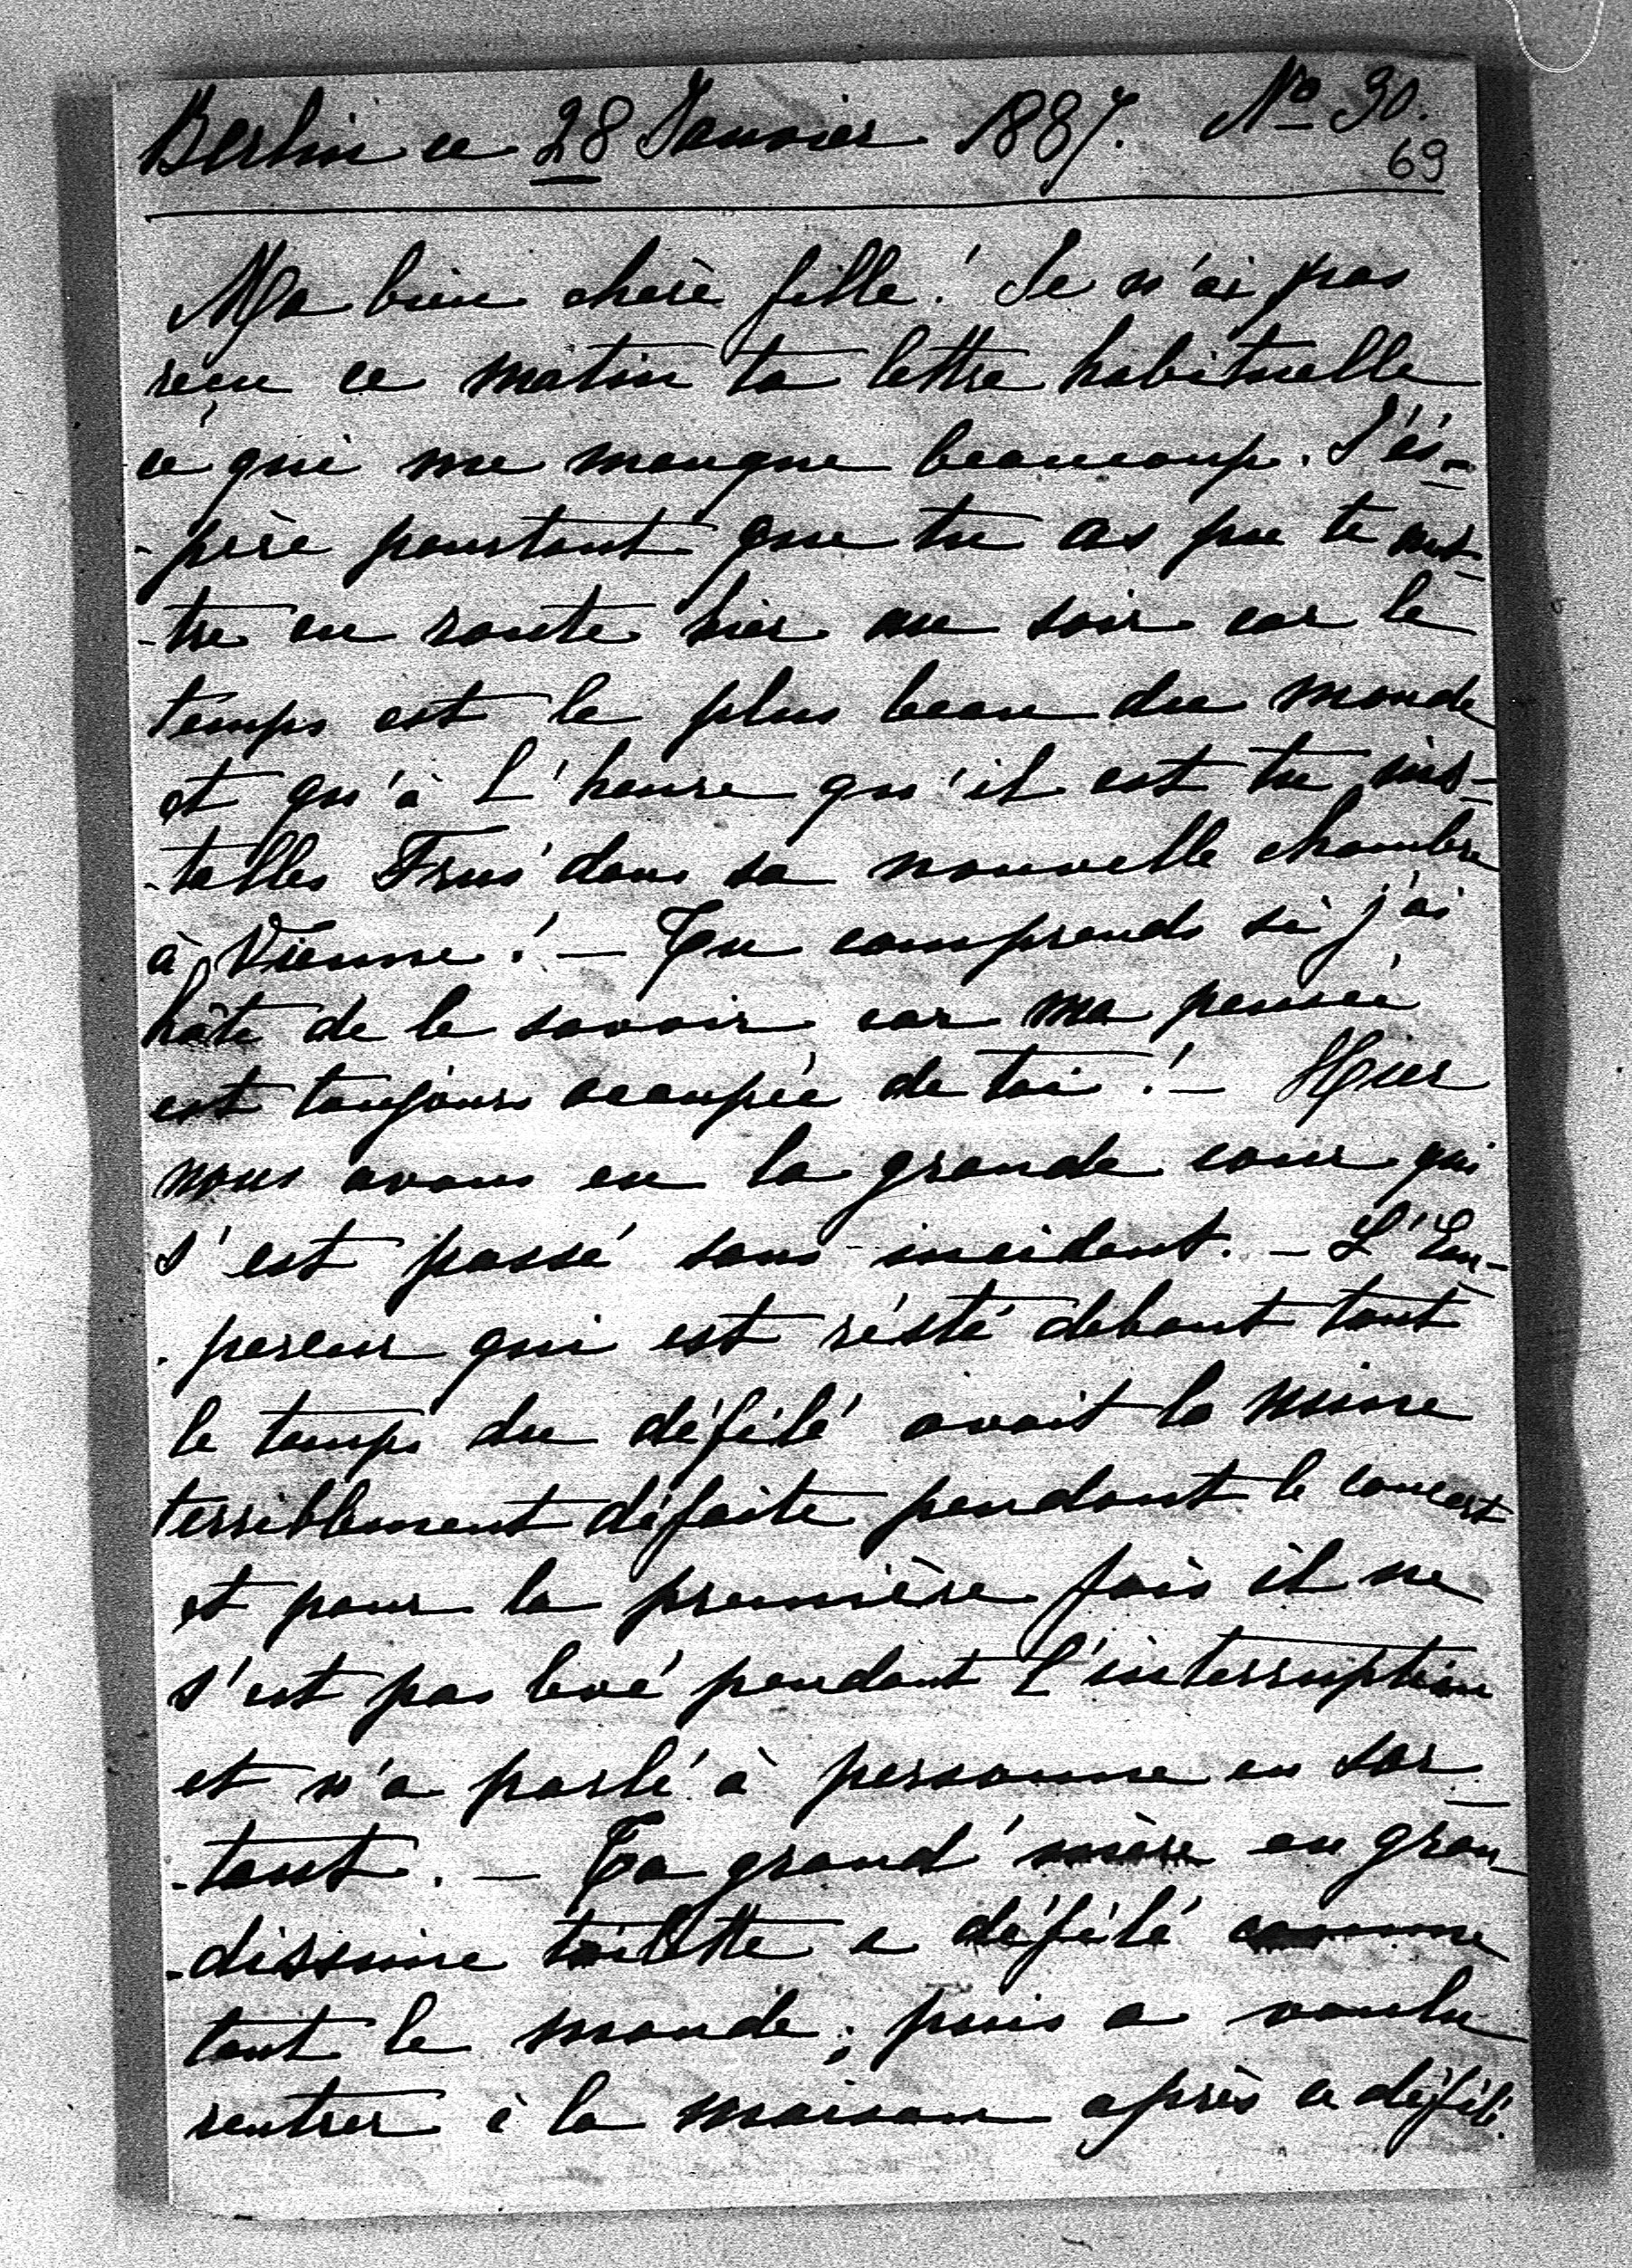 Berlin ce 28 Janvier 1887. No 30.
69
Ma bien chère fille! Je n'ai pas
reçu ce matin ta lettre habituelle
ce qui me manque beaucoup. J'és-
-père pourtant que tu as pu te met-
-tre en route hier au soir car le
temps est le plus beau du monde
et qu'à l'heure qu'il est tu ins-
-talles dans sa nouvelle chambre
à Vienne! — Tu comprends si j'ai
hâte de le savoir car ma pensée
est toujours occupée de toi! — Hier
nous avons eu la grande cour qui
s'est passé sans incident. — L'Em-
-pereur qui est résté debout tout
le temps du défilé avait la mine
terriblement défaite pendant le concert
et pour la première fois il ne
s'est pas levé pendant l'interruption
et n'a parlé à personne en sor-
-tant. — Ta grand'mère en gran-
-dissime toilette a défilé comme
tout le monde; puis a voulu
rentrer à la maison après ce défilé.